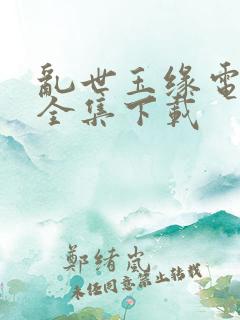 亂世玉缘電
全集下載
鄭绪岚
未经同意禁止转载